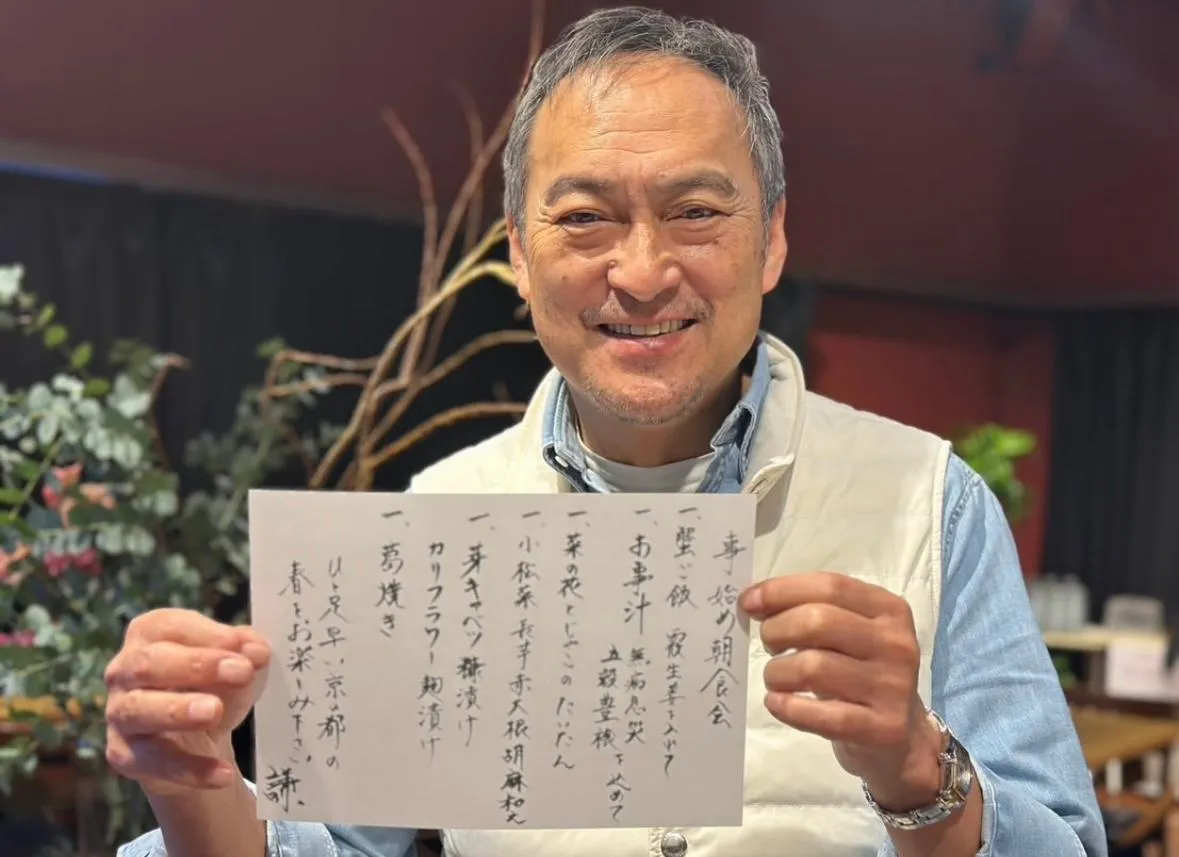 事始め朝食会
一、蟹ご飯 霰生姜を入れて
一、お事汁 無病息災
五穀豊穣を込めて
一、菜の花とじゃこのたいたん
一、小松菜長芋赤大根胡麻和え
一、芽キャベツ糠漬け
カリフラワー麹漬け
一、葛焼き
ひと足早い京の都の
春をお楽しみ下さい。
謙、